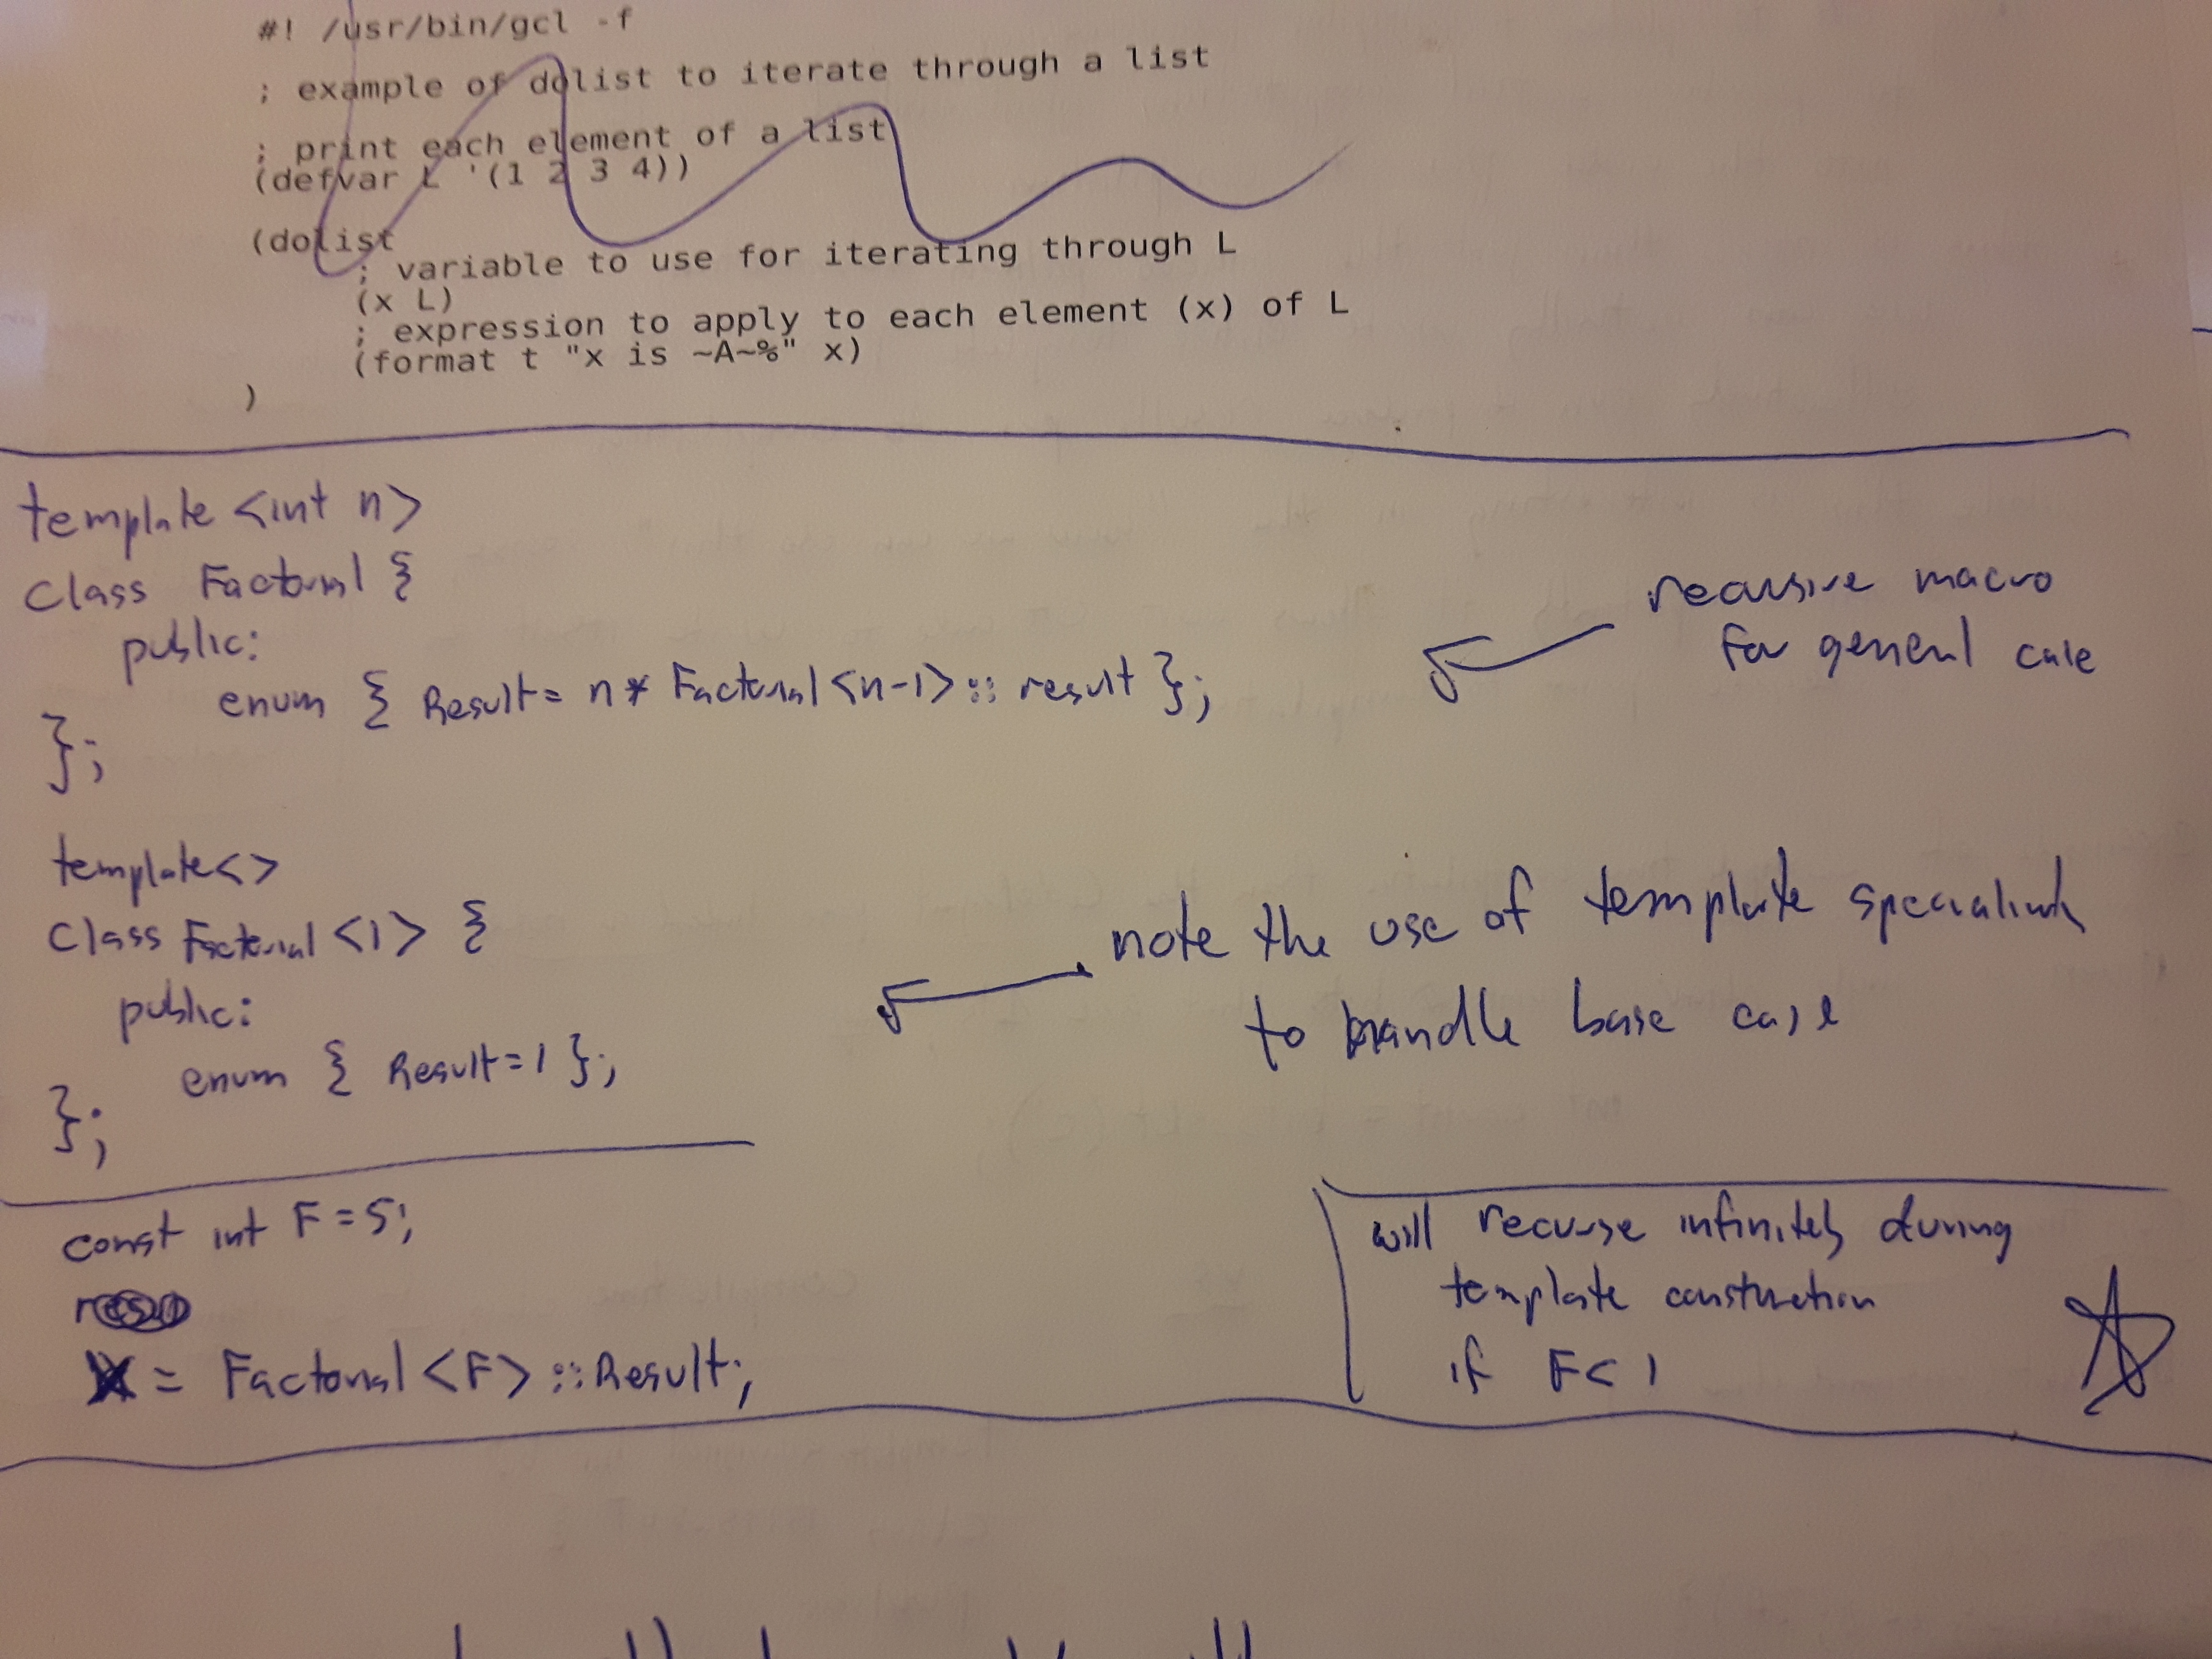 #! /usr/bin/gcl -f
; example of dolist to iterate through a list
; print each element of a list
(defvar L '(1 2 3 4))
(dolist
; variable to use for iterating through L
(x L)
; expression to apply to each element (x) of L
(format t "x is ~A~%" x)
)
template <int n>
class Factorial {
public:
enum { Result = n * Factorial<n-1>::result };
};
recursive macro
for general case
template<>
class Factorial <1> {
public:
enum { Result = 1 };
};
note the use of template
to handle base case
const int F = 5;
X = Factorial <F>::Result;
will recurse infinitely during
template construction
if F < 1